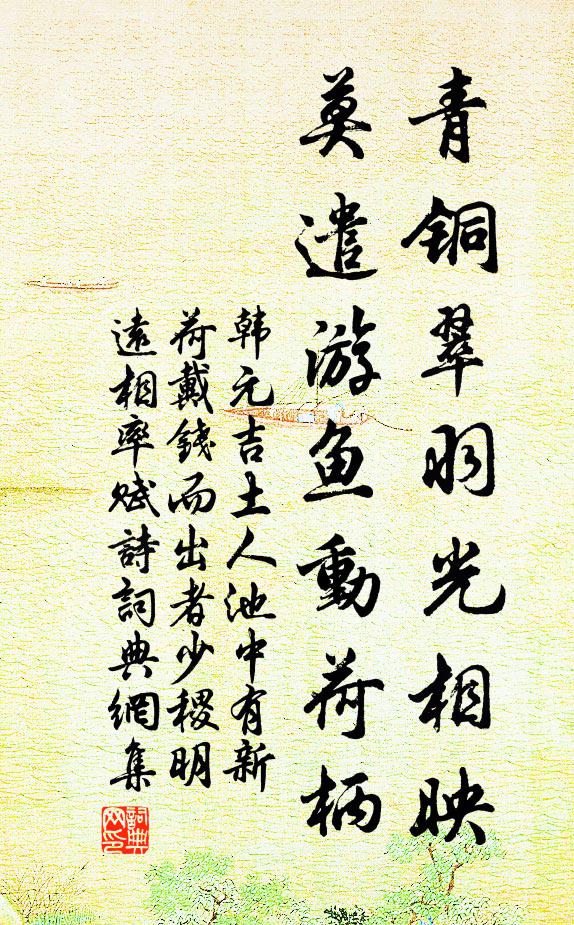 青铜翠羽光相映
莫遣游鱼動荷柄
韩元吉土人池中有新
荷戴錢而出者少稷明
遠相率赋詩詞典網集
詞典
网印